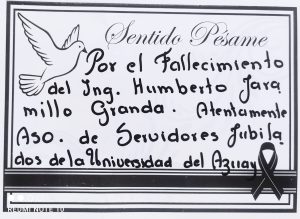 Sentido Pésame
Por el Fallecimiento
del Ing. Humberto Jara
millo Granda. Atentamente
Aso. de Servidores Jubila
dos de la Universidad del Azuay
REDMI NOTE 10